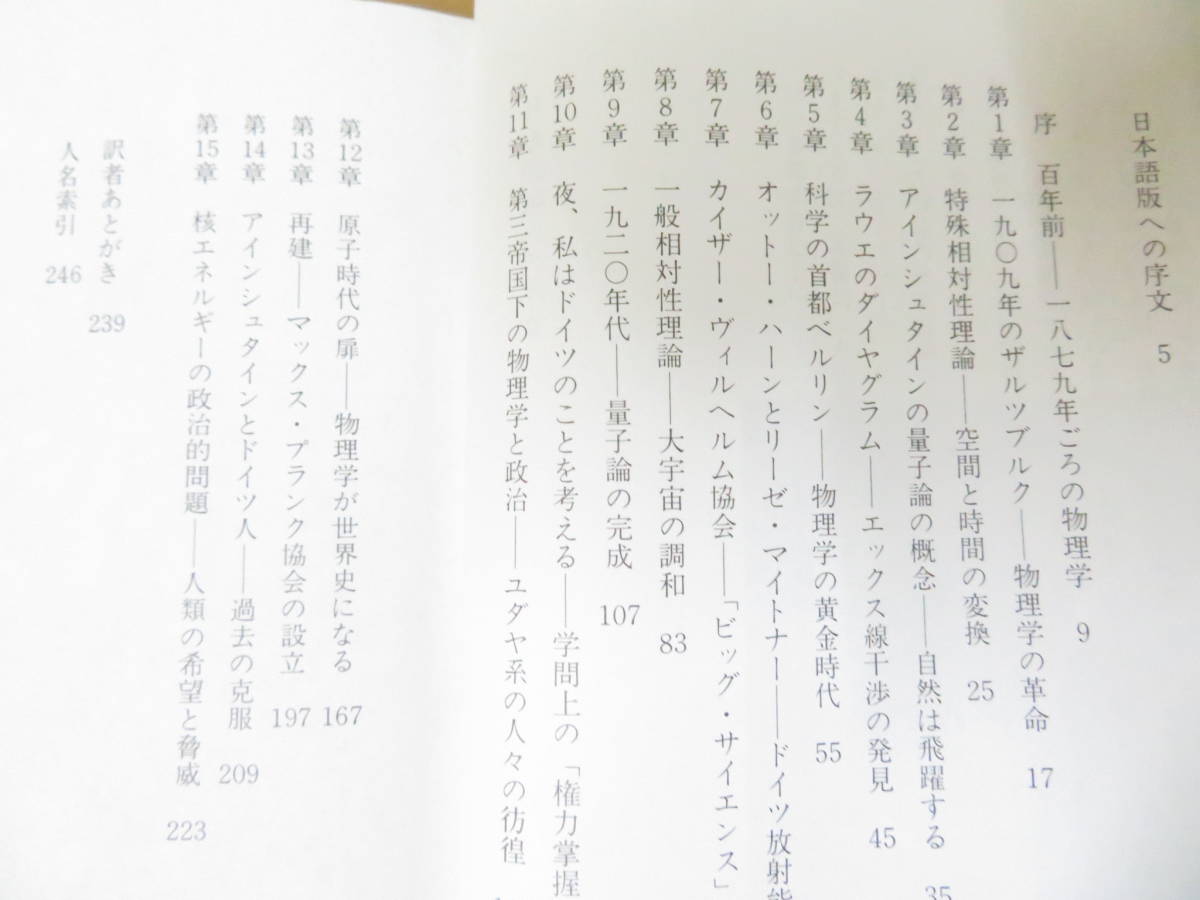 日本語版への序文 5
序 百年前――一八七九年ごろの物理学 9
第1章 一九〇九年のザルツブルク――物理学の革命 17
第2章 特殊相対性理論――空間と時間の変換 25
第3章 アインシュタインの量子論の概念――自然は飛躍する 35
第4章 ラウエのダイヤグラム――エックス線干渉の発見 45
第5章 科学の首都ベルリン――物理学の黄金時代 55
第6章 オットー・ハーンとリーゼ・マイトナー――ドイツ放射能
第7章 カイザー・ヴィルヘルム協会――「ビッグ・サイエンス」
第8章 一般相対性理論――大宇宙の調和 83
第9章 一九二〇年代――量子論の完成 107
第10章 夜、私はドイツのことを考える――学問上の「権力掌握
第11章 第三帝国下の物理学と政治――ユダヤ系の人々の彷徨
第12章 原子時代の扉――物理学が世界史になる 167
第13章 再建――マックス・プランク協会の設立 197
第14章 アインシュタインとドイツ人――過去の克服 209
第15章 核エネルギーの政治的問題――人類の希望と脅威 223
訳者あとがき 239
人名索引 246